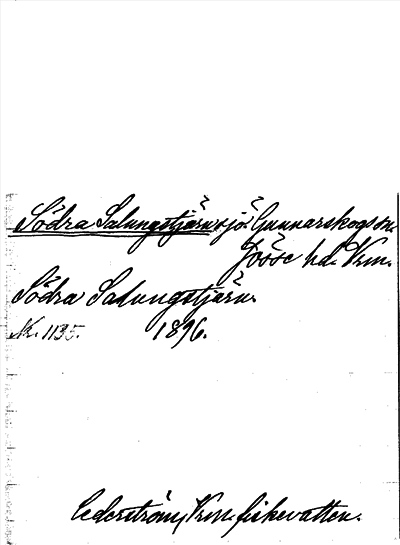 Södra Salungstjärn, sjö. Gunnarskogs sn.
Jösse hd. Vrm.
Södra Salungstjärn.
Nr. 1135. 1896.
Cederström, Vrm. fiskevatten.